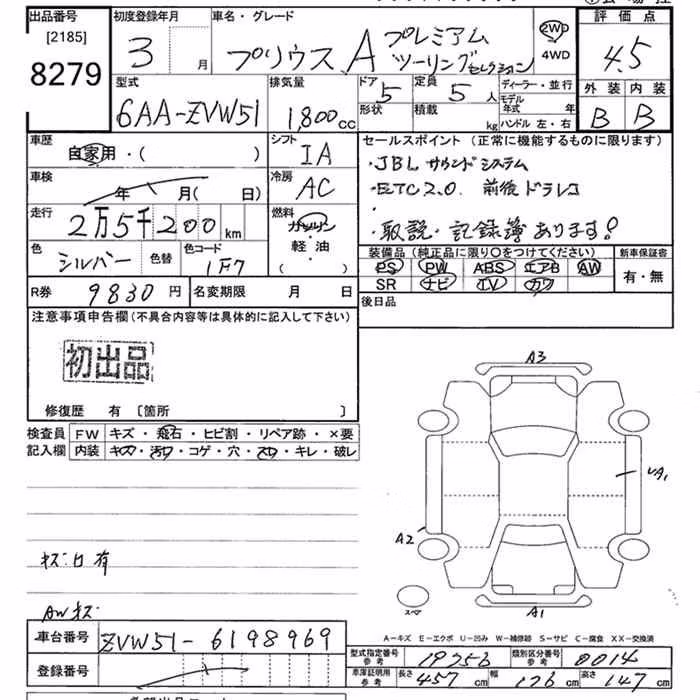 出品番号 初度登録年月 車名・グレード 評価点
[2185]
8279
3 月 プリウス A プレミアム ツーリングセレクション 2WD 4WD 4.5
型式 排気量 ドア 定員 ディーラー・並行 外装 内装
6AA-ZVW51 1,800cc 5 5人 モデル年式 年 B B
形状 積載 kg ハンドル 左・右
車歴 自家用・( ) シフト IA セールスポイント (正常に機能するものに限ります)
・JBL サウンドシステム
車検 年 月( 日) 冷房 AC ・ETC2.0. 前後ドラレコ
走行 2万5千200km 燃料 ガソリン ・取説・記録簿あります!
軽・油
( )
色 シルバー 色替 色コード 1F7
装備品 (純正品に限り○をつけてください) 新車保証書
PS PW ABS エアB AW 有・無
SR ナビ TV カワ
R券 9830円 名変期限 月 日 後日品
注意事項申告欄(不具合内容等は具体的に記入して下さい)
初出品
修復歴 有 〔箇所 〕
検査員 FW キズ・飛石・ヒビ割・リペア跡・×要
記入欄 内装 キズ・汚れ・コゲ・穴・スレ・キレ・破レ
A3
A1
A2
A1
スペア
キズ凹有
AWキズ
A-キズ E-エクボ U-凹み W-補修跡 S-サビ C-腐食 XX-交換済
車台番号 ZVW51-6198969
登録番号
型式指定番号 参考 19256 類別区分番号 参考 0014
車庫証明用 参考 長さ 457cm 幅 176cm 高さ 147cm